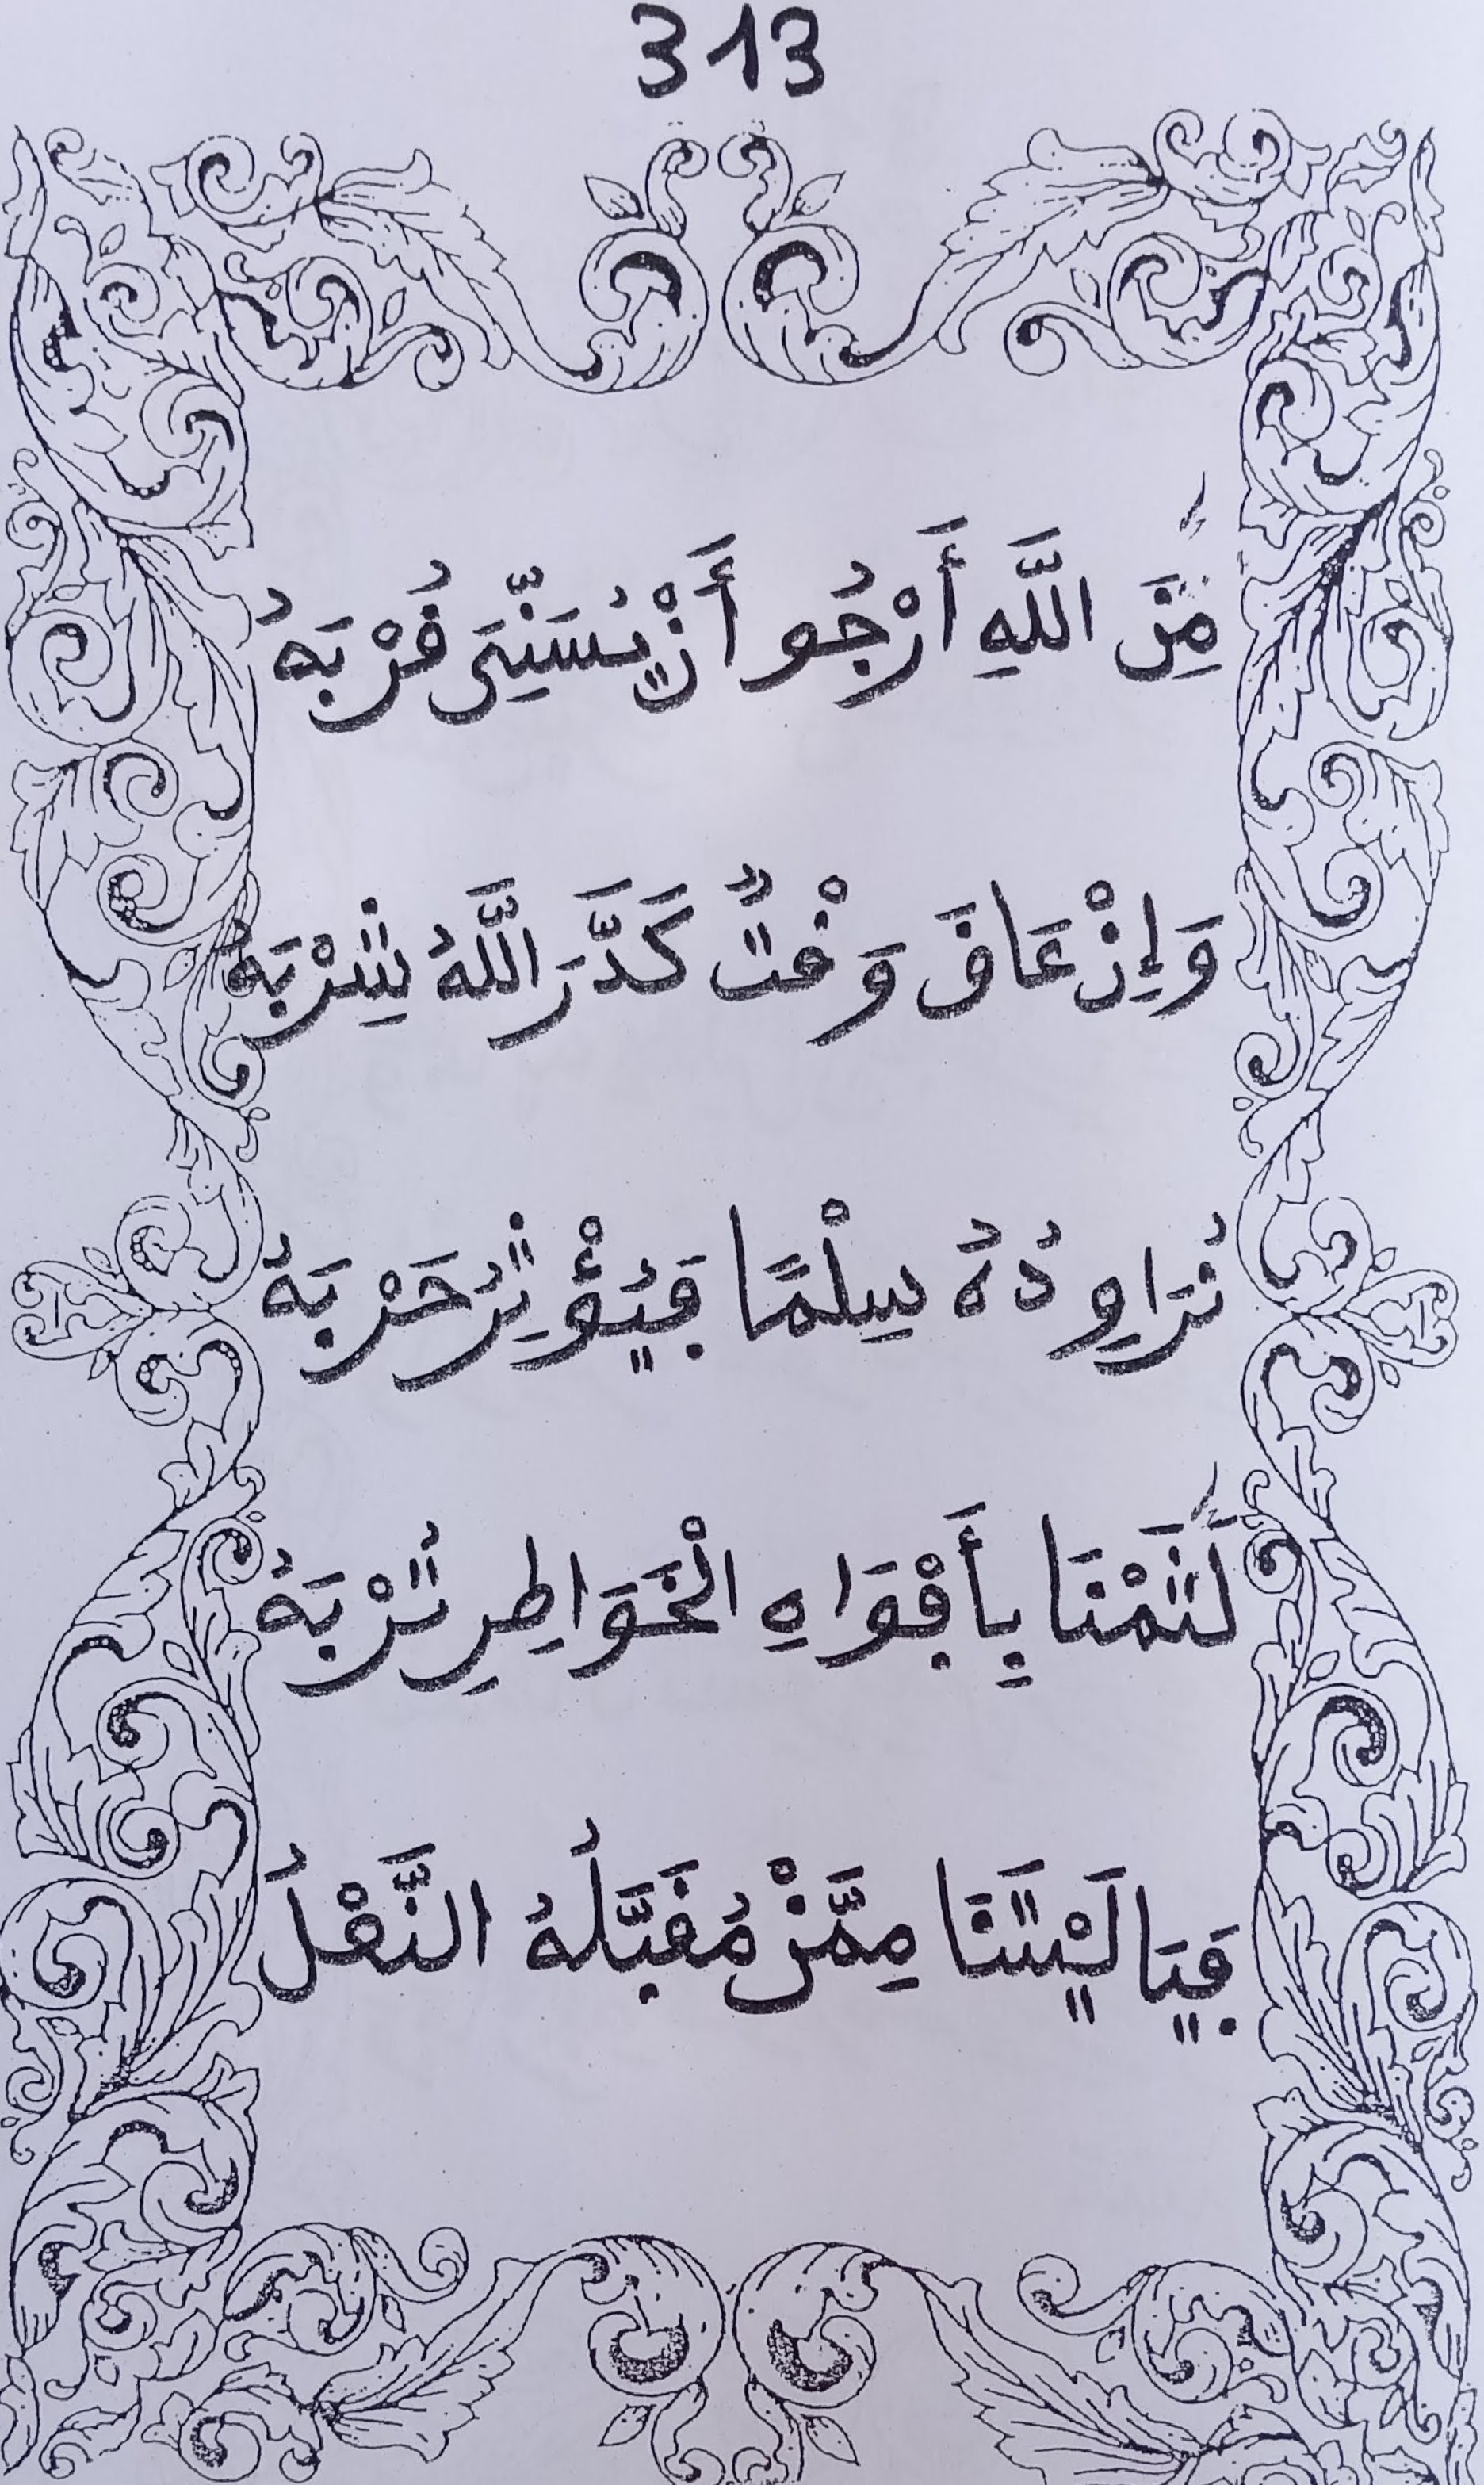 313
مِنَ اللَّهِ أَرْجُو أَنْ يُسَنِّيَ قُرْبَهُ
وَإِنْ عَاقَ وَقْتٌ كَدَّرَ اللَّهُ شِرْبَهُ
نُرَاوِدُهُ سِلْمًا فَيُؤْثِرُ حَرْبَهُ
لَثَمْنَا بِأَفْوَاهِ الْخَوَاطِرِ تُرْبَهُ
فَيَا لَيْتَنَا مِمَّنْ مُقَبَّلُهُ النَّعْلُ